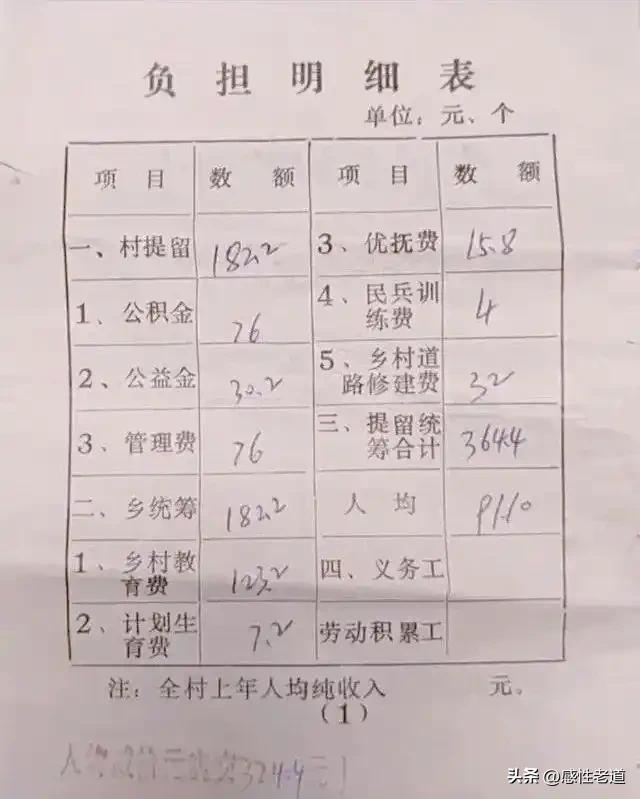 负担明细表
单位：元、个
项目 数额 项目 数额
一、村提留 182.2 3、优抚费 15.8
1、公积金 76 4、民兵训
练费 4
2、公益金 30.2 5、乡村道
路修建费 32
3、管理费 76 三、提留统
筹合计 364.4
二、乡统筹 182.2 人均 91.10
1、乡村教
育费 123.2 四、义务工
2、计划生
育费 7.2 劳动积累工
注：全村上年人均纯收入 元。
（1）
324.4元
头条 @感性老道